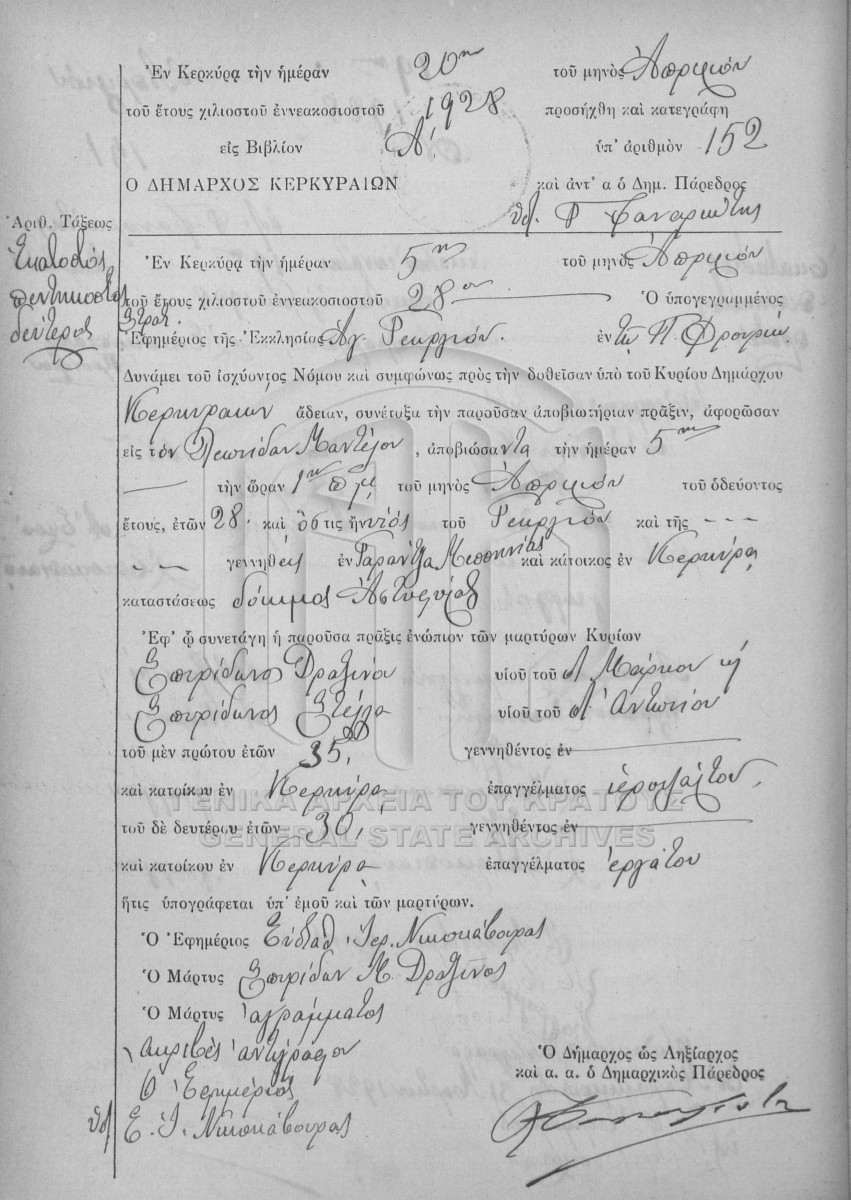 Ἐν Κερκύρᾳ τὴν ἡμέραν 20ην τοῦ μηνὸς Ἀπριλίου
τοῦ ἔτους χιλιοστοῦ ἐννεακοσιοστοῦ 1928 προσήχθη καὶ κατεγράφη
εἰς Βιβλίον Α΄. ὑπ' ἀριθμὸν 152
Ο ΔΗΜΑΡΧΟΣ ΚΕΡΚΥΡΑΙΩΝ καὶ ἀντ' α ὁ Δημ. Πάρεδρος
Ἀριθ. Τάξεως
Ἑκατοστός
πεντηκοστός
δεύτερος
Ἐν Κερκύρᾳ τὴν ἡμέραν 5ην τοῦ μηνὸς Ἀπριλίου
τοῦ ἔτους χιλιοστοῦ ἐννεακοσιοστοῦ 28ου Ὁ ὑπογεγραμμένος
Στρατ.
Ἐφημέριος τῆς Ἐκκλησίας Ἁγ Γεωργίου. ἐν τῷ Π. Φρουρίῳ
Δυνάμει τοῦ ἰσχύοντος Νόμου καὶ συμφώνως πρὸς τὴν δοθεῖσαν ὑπὸ τοῦ Κυρίου Δημάρχου
Κερκυραίων ἄδειαν, συνέταξα τὴν παροῦσαν ἀποβιωτήριαν πρᾶξιν, ἀφορῶσαν
εἰς τὸν Λεωνίδαν Μαντέλον, ἀποβιώσαντα τὴν ἡμέραν 5ην
τὴν ὥραν 1ην πμ τοῦ μηνὸς Ἀπριλίου τοῦ ὁδεύοντος
ἔτους, ἐτῶν 28. καὶ ὅστις ἦν υἱὸς τοῦ Γεωργίου καὶ τῆς - - -
- - γεννηθείς ἐν Γαράντζα Μεσσηνίας καὶ κάτοικος ἐν Κερκύρᾳ
καταστάσεως δόκιμος Ἀστυφύλαξ
Ἐφ' ᾧ συνετάγη ἡ παροῦσα πρᾶξις ἐνώπιον τῶν μαρτύρων Κυρίων
Σπυρίδωνος Δραζίνου υἱοῦ τοῦ Μάρκου κ
Σπυρίδωνος Στέλλα υἱοῦ τοῦ Ἀντωνίου
τοῦ μὲν πρώτου ἐτῶν 35, γεννηθέντος ἐν
καὶ κατοίκου ἐν Κερκύρᾳ ἐπαγγέλματος ἱεροψάλτου.
ΓΕΝΙΚΑ ΑΡΧΕΙΑ ΤΟΥ ΚΡΑΤΟΥΣ
τοῦ δὲ δευτέρου ἐτῶν 30, γεννηθέντος ἐν
GENERAL STATE ARCHIVES
καὶ κατοίκου ἐν Κερκύρᾳ ἐπαγγέλματος ἐργάτου
ἥτις ὑπογράφεται ὑπ' ἐμοῦ καὶ τῶν μαρτύρων.
Ὁ Ἐφημέριος Εὐστάθ. Ἱερ. Νικοκάβουρας
Ὁ Μάρτυς Σπυρίδων Μ. Δραζῖνος
Ὁ Μάρτυς ἀγράμματος
Ἀκριβὲς ἀντίγραφον
Ὁ Ἐφημέριος
Ε. Ι. Νικοκάβουρας
Ὁ Δήμαρχος ὡς Ληξίαρχος
καὶ α. α. ὁ Δημαρχικὸς Πάρεδρος